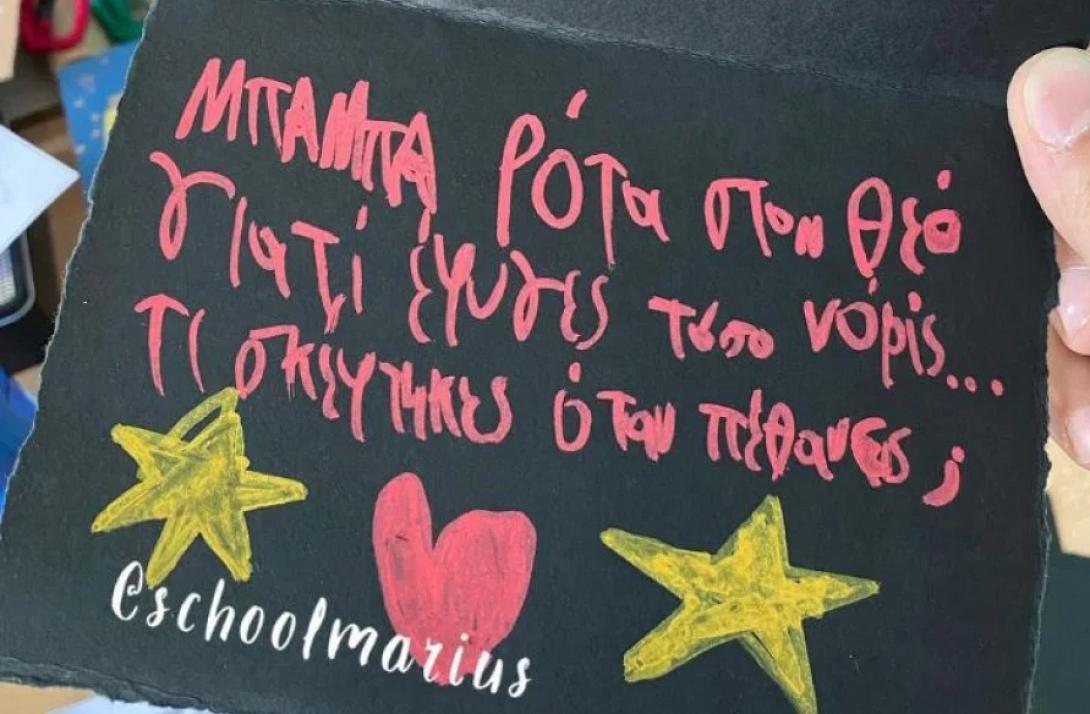 ΜΠΑΜΠΑ ρότα στον θεό
γιατί έφυγες τόσο νόρίς...
Τι σκεφτηκες όταν πέθανες ;
@schoolmarius